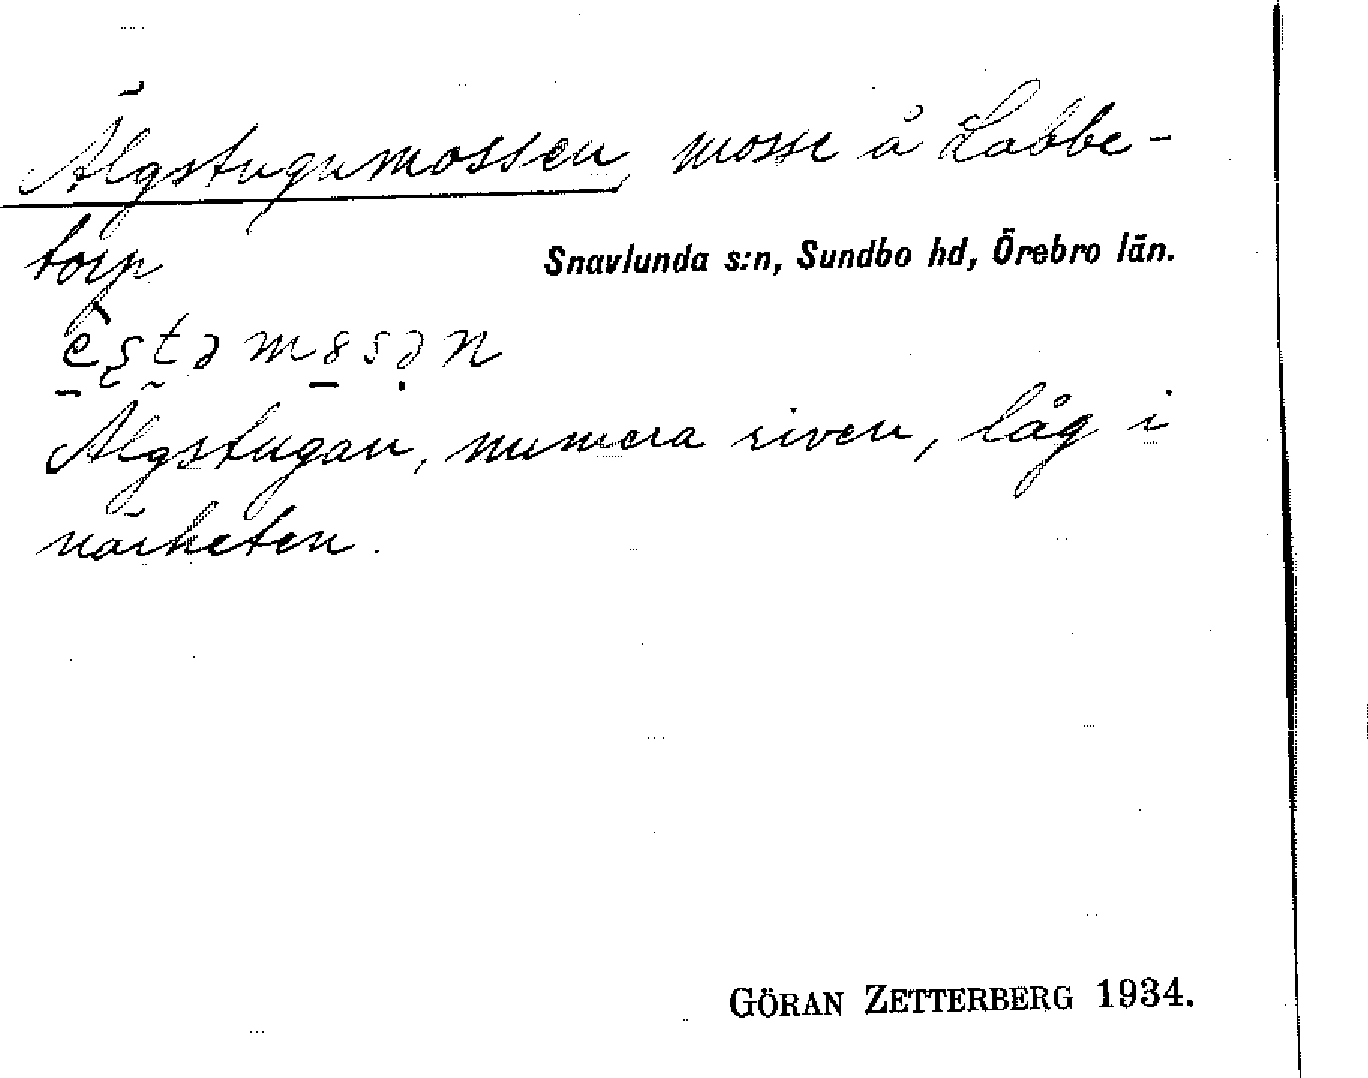 Älgstugumossen, mosse å Labbe-
torp
Snavlunda s:n, Sundbo hd, Örebro län.
Älgstugan, numera riven, låg i
närheten.
GÖRAN ZETTERBERG 1934.